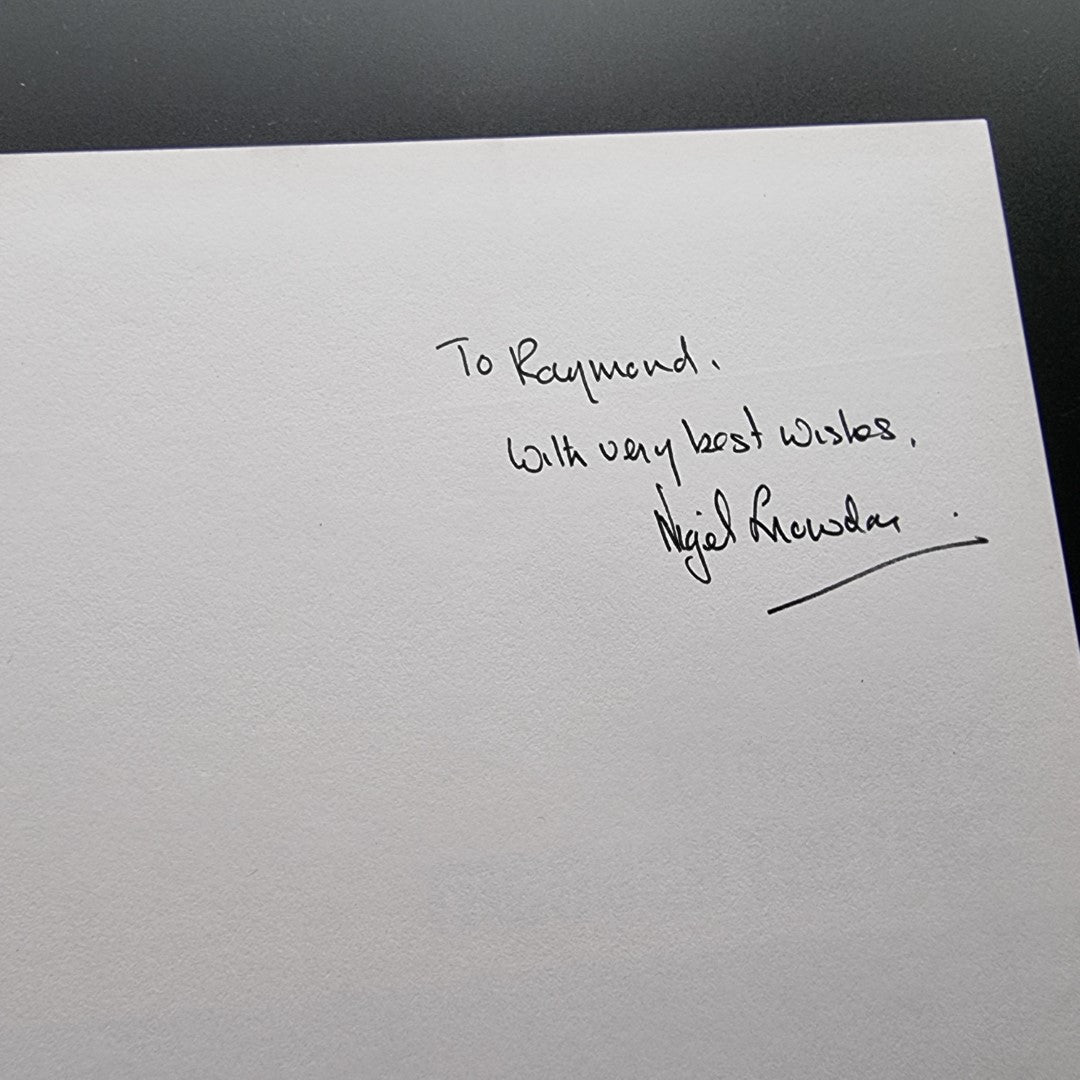 To Raymond.
With very best wishes,
Nigel Snowdon